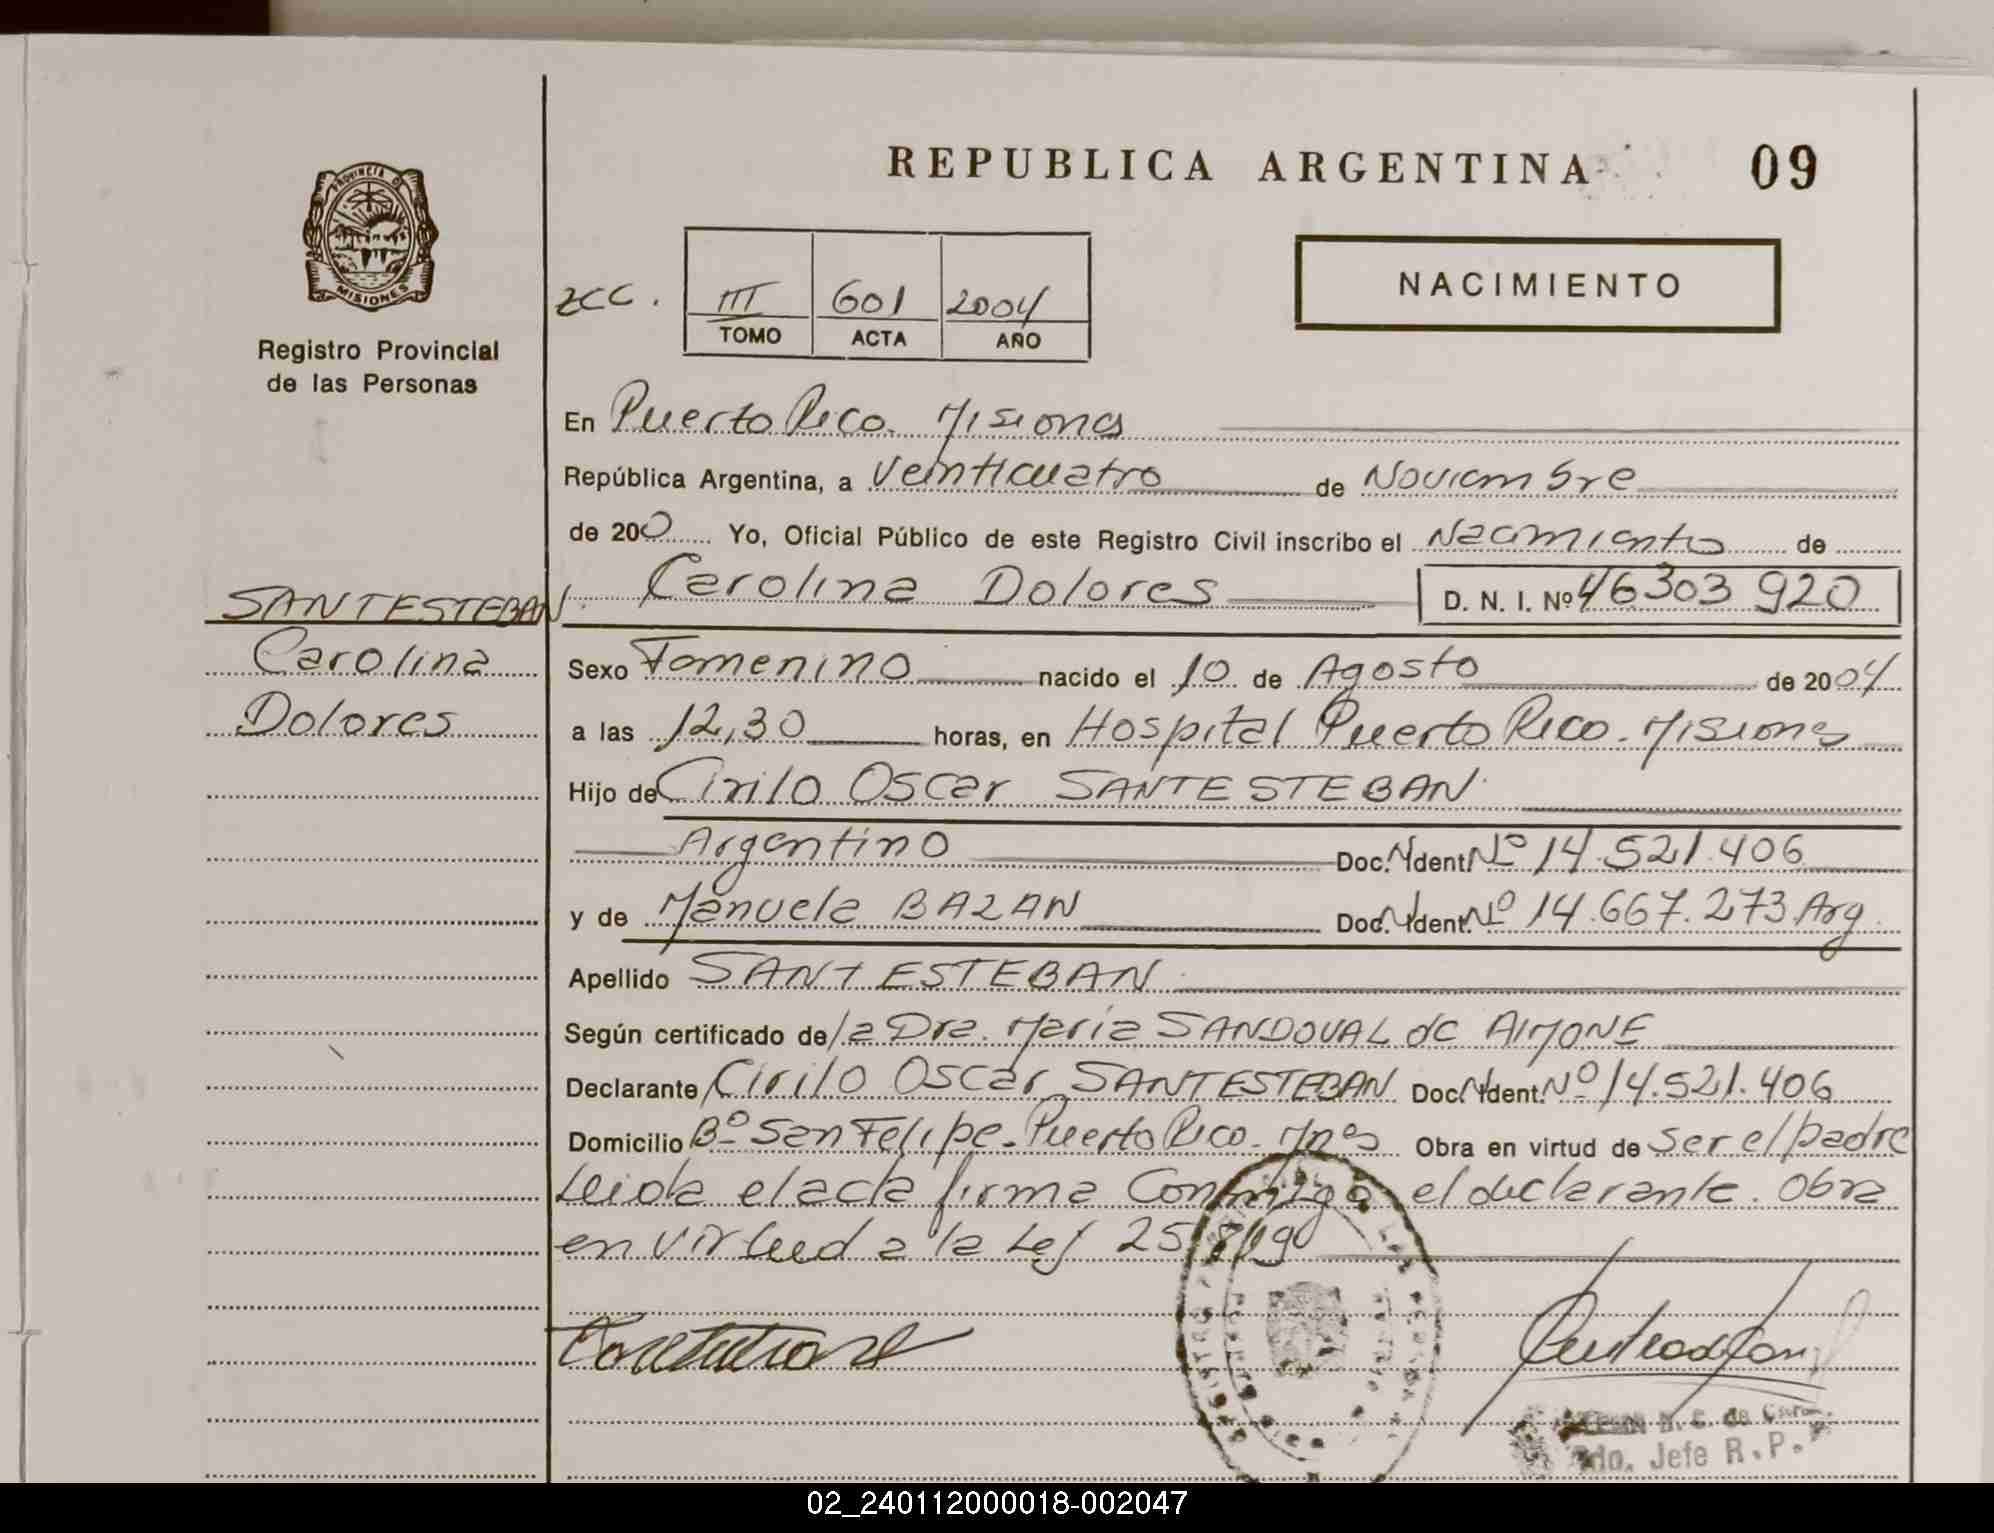 REPUBLICA ARGENTINA 09
PROVINCIA DE
MISIONES
Registro Provincial
de las Personas
NACIMIENTO
III 601 2004
TOMO ACTA AÑO
En Puerto Rico. Misiones
República Argentina, a Veinticuatro de Noviembre
de 200 Yo, Oficial Público de este Registro Civil inscribo el Nacimiento de
Carolina Dolores D. N. I. Nº 46303 920
SANTESTEBAN
Carolina
Dolores
Sexo Femenino nacido el 10 de Agosto de 2004
a las 12,30 horas, en Hospital Puerto Rico. Misiones
Hijo de Cirilo Oscar SANTESTEBAN
Argentino Doc. N. Ident. Nº 14.521.406
y de Manuela BAZAN Doc. N. Ident. Nº 14.667.273 Arg.
Apellido SANTESTEBAN
Según certificado de la Dra. Maria SANDOVAL de AIMONE
Declarante Cirilo Oscar SANTESTEBAN Doc. N. Ident. Nº 14.521.406
Domicilio Bº San Felipe. Puerto Rico. Mnes Obra en virtud de ser el padre
Leida el acta firma Conmigo el declarante. Obra
en virtud a la Ley 25.819
Jefe R.P.
02_240112000018-002047